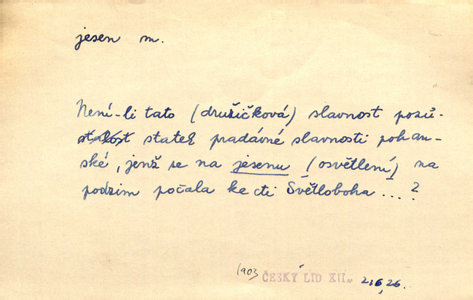 jesen m.
Není-li tato (družičková) slavnost pozů-
statek pradávné slavnosti pohan-
ské, jenž se na jesenu (osvětlení) na
podzim počala ke cti Světloboha ... ?
1903 ČESKÝ LID XII.